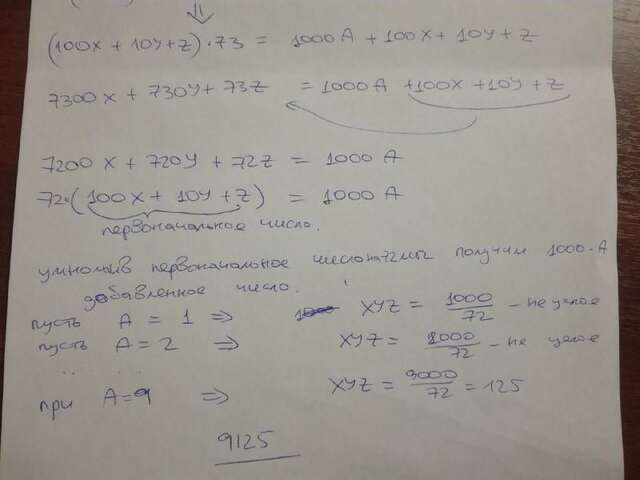 ⇓
(100X + 10Y + Z) · 73 = 1000 A + 100X + 10Y + Z
7300 X + 730Y + 73Z = 1000 A + 100X + 10Y + Z
7200 X + 720Y + 72Z = 1000 A
72·(100X + 10Y + Z) = 1000 A
первоначальное число.
умножив первоначальное число на 72 мы получим 1000·A
добавленное число.
пусть A = 1 ⇒ XYZ = 1000/72 - не целое
пусть A = 2 ⇒ XYZ = 2000/72 - не целое
.. .. ..
при A = 9 ⇒ XYZ = 9000/72 = 125
9125